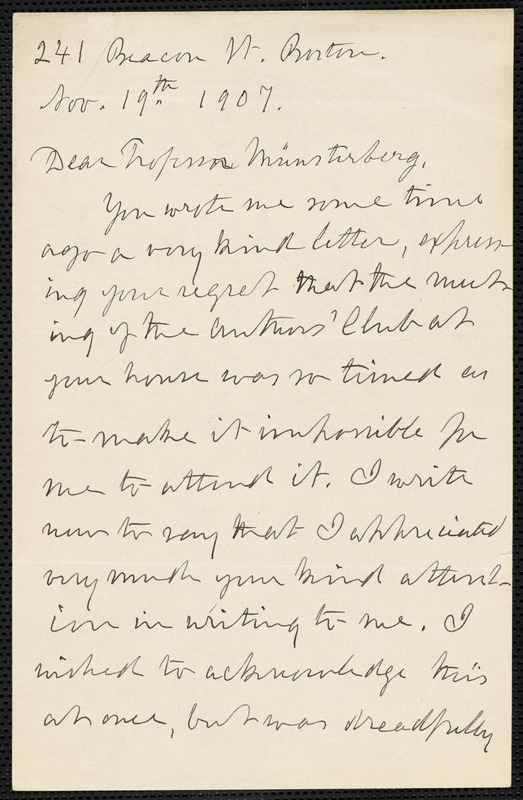 241 Beacon St. Boston.
Nov. 19th. 1907.
Dear Professor Münsterberg,
You wrote me some time
ago a very kind letter, express-
ing your regret that the meet-
ing of the Authors' Club at
your house was so timed as
to make it impossible for
me to attend it. I write
now to say that I appreciated
very much your kind attent-
ion in writing to me. I
wished to acknowledge this
at once, but was dreadfully